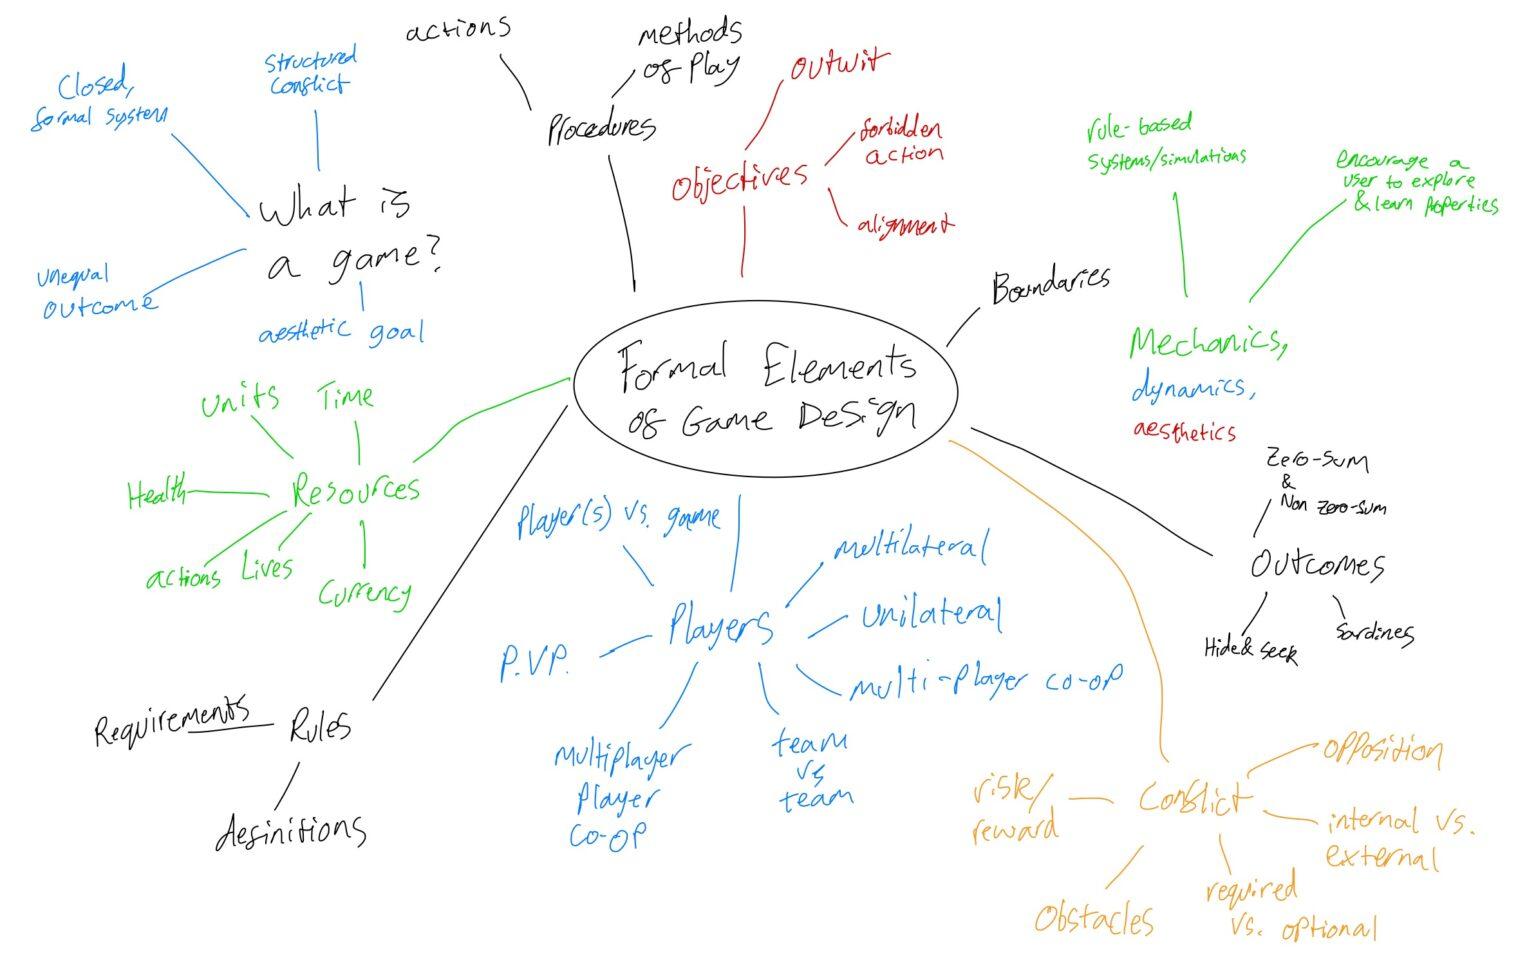 actions
methods
of Play
Procedures
Structured
Conflict
Closed,
formal system
What is
a game?
unequal
outcome
aesthetic goal
outwit
forbidden
action
Objectives
alignment
rule-based
systems/simulations
encourage a
user to explore
& learn properties
Boundaries
Mechanics,
dynamics,
aesthetics
Formal Elements
of Game Design
Units
Time
Health
Resources
actions
Lives
Currency
Zero-sum
&
Non zero-sum
Outcomes
Hide & seek
Sardines
Player(s) vs. game
multilateral
Players
Unilateral
P.VP.
multi-player co-op
multiplayer
player
co-op
team
vs
team
Requirements
Rules
definitions
opposition
risk/
reward
Conflict
internal vs.
external
Obstacles
required
vs. optional